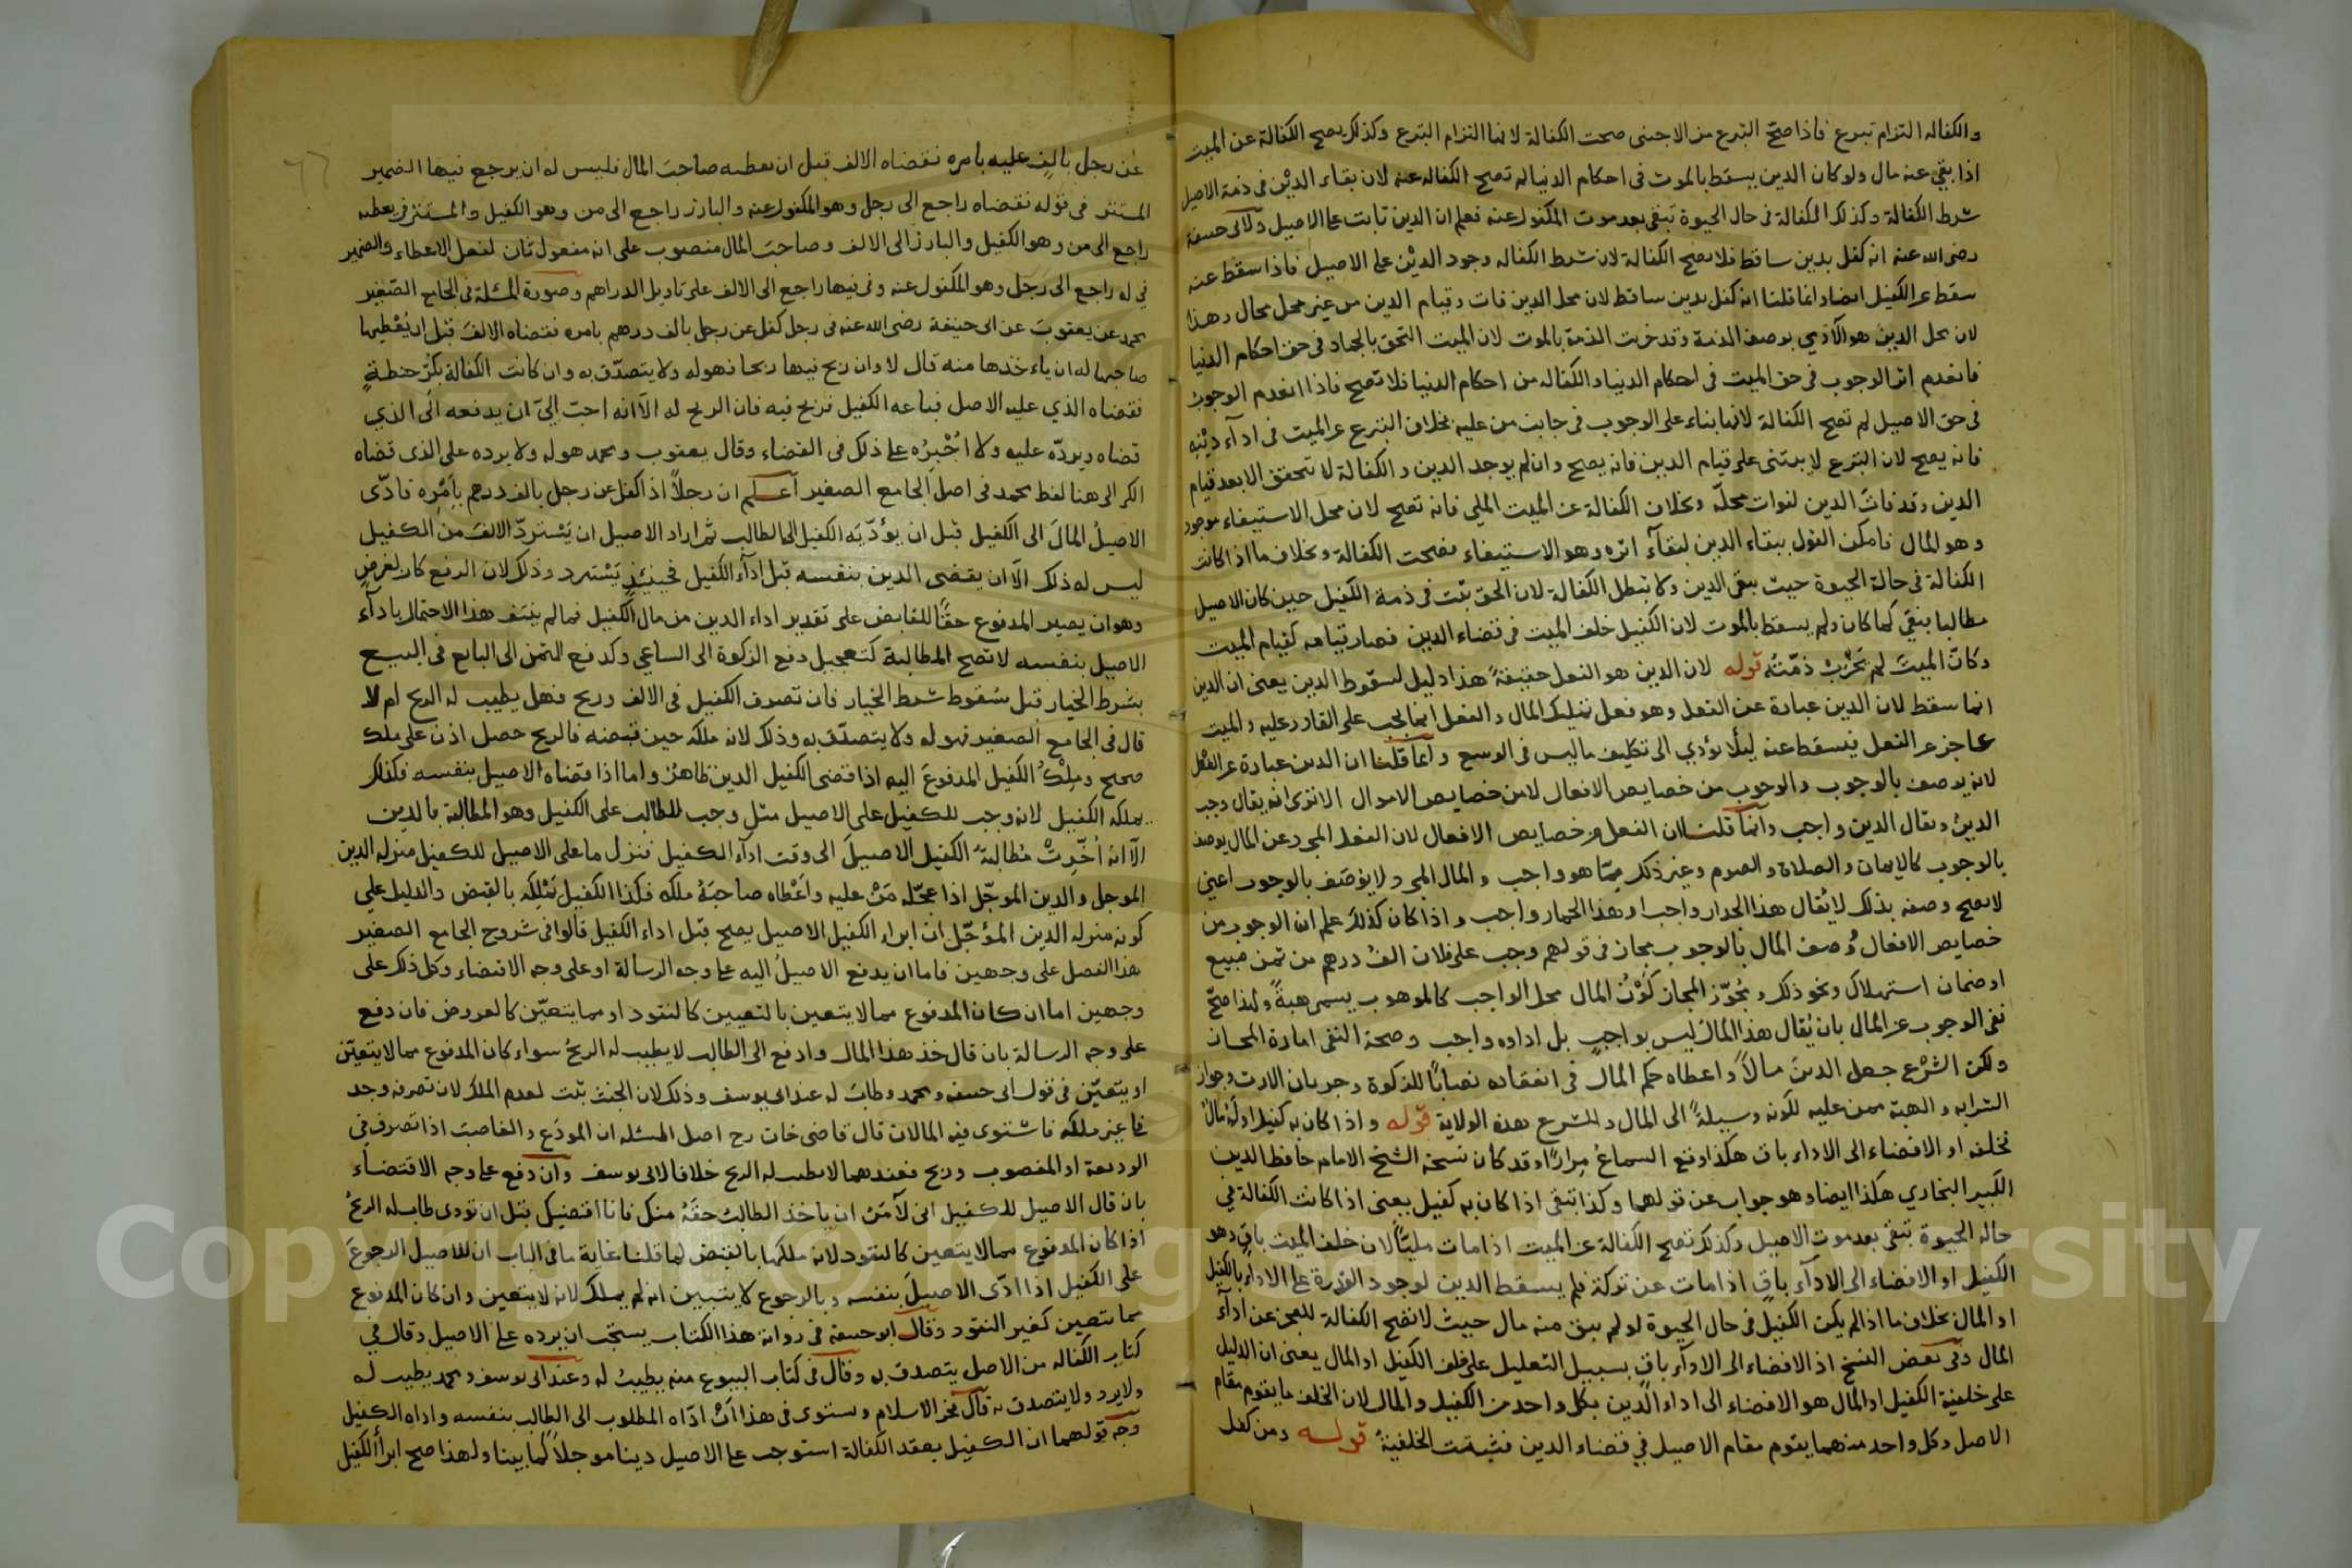 والكفاله التزام تبرع فاذا صح التبرع من الاجنبى صحت الكفالة لانها التزام التبرع وكذلك يصح الكفالة عن الميت
اذا بقى عنه مال ولو كان الدين يسقط بالموت فى احكام الدنيا لم تصح الكفاله عنه لان بقاء الدين فى ذمة الاصيل
شرط الكفالة وكذلك الكفالة فى حال الحيوة تبقى بعد موت المكفول عنه فعلم ان الدين ثابت على الاصيل ولابى حنيفة
رضى الله عنه انه كفل بدين ساقط فلا تصح الكفالة لان شرط الكفاله وجود الدين على الاصيل فاذا سقط عنه
سقط عن الكفيل ايضا وانما قلنا انه كفل بدين ساقط لان محل الدين فات وقيام الدين من غير محل محال وهذا
لان محل الدين هو الآدمي بوصف الذمة وقد خربت الذمة بالموت لان الميت التحق بالجماد فى حق احكام الدنيا
فانعدم اثر الوجوب فى حق الميت فى احكام الدنيا والكفاله من احكام الدنيا فلا تصح فاذا انعدم الوجوب
فى حق الاصيل لم تصح الكفالة لانها بناء على الوجوب فى جانب من عليه بخلاف التبرع عن الميت فى اداء دينه
فانه يصح لان التبرع لا يبتنى على قيام الدين فانه يصح وان لم يوجد الدين والكفالة لا تتحقق الا بعد قيام
الدين وقد فات الدين لفوات محله وبخلاف الكفالة عن الميت الملى فانه تصح لان محل الاستيفاء موجود
وهو المال فامكن القول ببقاء الدين لبقآء اثره وهو الاستيفاء فصحت الكفالة وبخلاف ما اذا كانت
الكفالة فى حالة الحيوة حيث يبقى الدين ولا تبطل الكفالة لان الحق ثبت فى ذمة الكفيل حين كان الاصيل
مطالبا فيبقى كما كان ولم يسقط بالموت لان الكفيل خلف الميت فى قضاء الدين فصار قيامه كقيام الميت
وكان الميت لم تخرب ذمته قوله لان الدين هو الفعل حقيقة هذا دليل لسقوط الدين يعنى ان الدين
انما سقط لان الدين عبارة عن الفعل وهو فعل تمليك المال والفعل انما يجب على القادر عليه والميت
عاجز عن الفعل فيسقط عنه ليلا يؤدي الى تكليف ما ليس فى الوسع وانما قلنا ان الدين عبارة عن الفعل
لانه يوصف بالوجوب والوجوب من خصايص الافعال لا من خصايص الاموال الا ترى انه يقال وجب
الدين ويقال الدين واجب وانما قلنا ان الفعل من خصايص الافعال لان الفعل المجرد عن المال يوصف
بالوجوب كالايمان والصلاة والصوم وغير ذلك مما هو واجب والمال المجرد لا يوصف بالوجوب اعنى
لا يصح وصفه بذلك لا يقال هذا الجدار واجب او هذا الحمار واجب واذا كان كذلك علم ان الوجوب من
خصايص الافعال وصف المال بالوجوب مجاز فى قولهم وجب على فلان الف درهم من ثمن مبيع
او ضمان استهلاك ونحو ذلك ومجوز المجاز كون المال محل الواجب كالموهوب يسمى هبة ولهذا صح
نفى الوجوب عن المال بان يقال هذا المال ليس بواجب بل اداوه واجب وصحة النفى امارة المجاز
ولكن الشرع جعل الدين مالا واعطاه حكم المال فى انعقاده نصابا للزكوة وجريان الارث وجواز
الشرابه والهبة ممن عليه لكونه وسيلة الى المال وللشرع هذه الولاية قوله واذا كان به كفيل او له مال
فخلفه او الافضاء الى الاداء باق هكذا وقع السماع مرارا وقد كان نسخة الشيخ الامام حافظ الدين
الكبير البخاري هكذا ايضا وهو جواب عن قولهما وكذا تبقى اذا كان به كفيل يعنى اذا كانت الكفالة في
حاله الحيوة تبقى بعد موت الاصيل وكذلك تصح الكفالة عن الميت اذا مات مليا لان خلف الميت باق وهو
الكفيل او الافضاء الى الادآء باق اذا مات عن تركة فلم يسقط الدين لوجود القدرة على الاداء بالكفيل
او المال بخلاف ما اذا لم يكن الكفيل فى حال الحيوة او لم يبق منه مال حيث لا تصح الكفالة للعجز عن ادآء
المال وفى بعض النسخ اذ الافضاء الى الادآء باق بسبيل التعليل على خلف الكفيل او المال يعنى ان الدليل
على خلفية الكفيل او المال هو الافضاء الى اداء الدين بكل واحد من الكفيل والمال لان الخلف ما يقوم مقام
الاصل وكل واحد منهما يقوم مقام الاصيل في قضاء الدين فثبتت الخلفية قوله ومن كفل
٦٦
عن رجل بالف عليه بامره فقضاه الالف قبل ان يعطيه صاحب المال فليس له ان يرجع فيها الضمير
المستتر فى قوله فقضاه راجع الى رجل وهو المكفول عنه والبارز راجع الى من وهو الكفيل والمستتر فى يعطيه
راجع الى من وهو الكفيل والبارز الى الالف وصاحب المال منصوب على انه مفعول ثان لفعل الاعطاء والضمير
في له راجع الى رجل وهو المكفول عنه وفى فيها راجع الى الالف على تاويل الدراهم وصورة المسئلة فى الجامع الصغير
محمد عن يعقوب عن ابى حنيفة رضى الله عنه فى رجل كفل عن رجل بالف درهم بامره فقضاه الالف قبل ان يعطيها
صاحبها له ان ياءخذها منه قال لا وان ربح فيها ربحا فهو له ولا يتصدق به وان كانت الكفالة بكر حنطة
فقضاه الذي عليه الاصل فباعه الكفيل فربح فيه فان الربح له الا انه احب الى ان يدفعه الى الذي
قضاه ويرده عليه ولا اجبره على ذلك فى القضاء وقال يعقوب ومحمد هو له ولا يرده على الذى قضاه
الكر الى هنا لفظ محمد فى اصل الجامع الصغير اعلم ان رجلا اذا كفل عن رجل بالف درهم بامره فادى
الاصيل المال الى الكفيل قبل ان يؤديه الكفيل الى الطالب ثم اراد الاصيل ان يسترد الالف من الكفيل
ليس له ذلك الا ان يقضى الدين بنفسه قبل ادآء الكفيل فحينئذ يسترد وذلك لان الدفع كان لغرض
وهو ان يصير المدفوع حقا للقابض على تقدير اداء الدين من مال الكفيل فما لم ينتف هذا الاحتمال بادآء
الاصيل بنفسه لا تصح المطالبة كتعجيل دفع الزكوة الى الساعي وكدفع الثمن الى البايع فى البيع
بشرط الخيار قبل سقوط شرط الخيار فان تصرف الكفيل فى الالف وربح فهل يطيب له الربح ام لا
قال فى الجامع الصغير فهو له ولا يتصدق به وذلك لانه ملكه حين قبضه فالربح حصل اذن على ملك
صحيح وملك الكفيل المدفوع اليه اذا قضى الكفيل الدين ظاهر واما اذا قضاه الاصيل بنفسه فكذلك
يملكه الكفيل لانه وجب للكفيل على الاصيل مثل وجب للطالب على الكفيل وهو المطالبة بالدين
الا انه اخرت مطالبة الكفيل الاصيل الى وقت ادآء الكفيل فنزل ما على الاصيل للكفيل منزله الدين
الموجل والدين الموجل اذا عجله من عليه واعطاه صاحبه ملكه فكذا الكفيل تملكه بالقبض والدليل على
كونه منزله الدين المؤجل ان ابراء الكفيل الاصيل يصح قبل اداء الكفيل قالوا فى شروح الجامع الصغير
هذا الفصل على وجهين فاما ان يدفع الاصيل اليه على وجه الرسالة او على وجه الاقتضاء وكل ذلك على
وجهين اما ان كان المدفوع مما لا يتعين بالتعيين كالنقود او مما يتعين كالعروض فان دفع
على وجه الرسالة بان قال خذ هذا المال وادفع الى الطالب لا يطيب له الربح سواء كان المدفوع مما لا يتعين
او يتعين فى قول ابى حنيفه ومحمد وطاب له عند ابى يوسف وذلك لان الخبث ثبت لعدم الملك لان تصرفه وجد
في غير ملكه فاستوى فيه المالان قال قاضى خان رح اصل المسئله ان المودع والغاصب اذا تصرف في
الوديعة او المغصوب وربح فعندهما لا يطيب له الربح خلافا لابى يوسف وان دفع على وجه الاقتضاء
بان قال الاصيل للكفيل انى لا آمن ان ياخذ الطالب حقه منك فانا اقضيك قبل ان تودى طاب له الربح
اذا كان المدفوع مما لا يتعين كالنقود لانه ملكها بالقبض لما قلنا غاية ما فى الباب ان للاصيل الرجوع
على الكفيل اذا ادى الاصيل بنفسه وبالرجوع لا يتبين انه لم يملك لانه لا يتعين وان كان المدفوع
مما يتعين كغير النقود وقال ابو حنيفة فى رواية هذا الكتاب يستحب ان يرده على الاصيل وقال في
كتاب الكفاله من الاصل يتصدق به وقال فى كتاب البيوع منه يطيب له وعند ابى يوسف ومحمد يطيب له
ولا يرد ولا يتصدق به قال فخر الاسلام ويستوى فى هذا ان اداه المطلوب الى الطالب بنفسه واداه الكفيل
وجه قولهما ان الكفيل بعقد الكفالة استوجب على الاصيل دينا موجلا كما بينا ولهذا صح ابرأ الكفيل